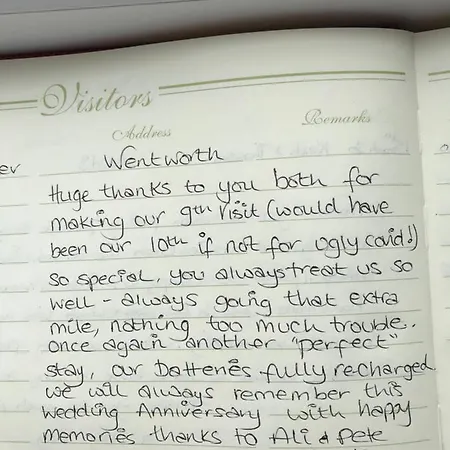 Visitors
Address Remarks
er Wentworth
Huge thanks to you both for
making our 9th visit (would have
been our 10th if not for ugly covid!)
so special, you always treat us so
well - always going that extra
mile, nothing too much trouble.
once again another "perfect"
stay, our batteries fully recharged
we will always remember this
wedding Anniversary with happy
memories thanks to Ali & Pete